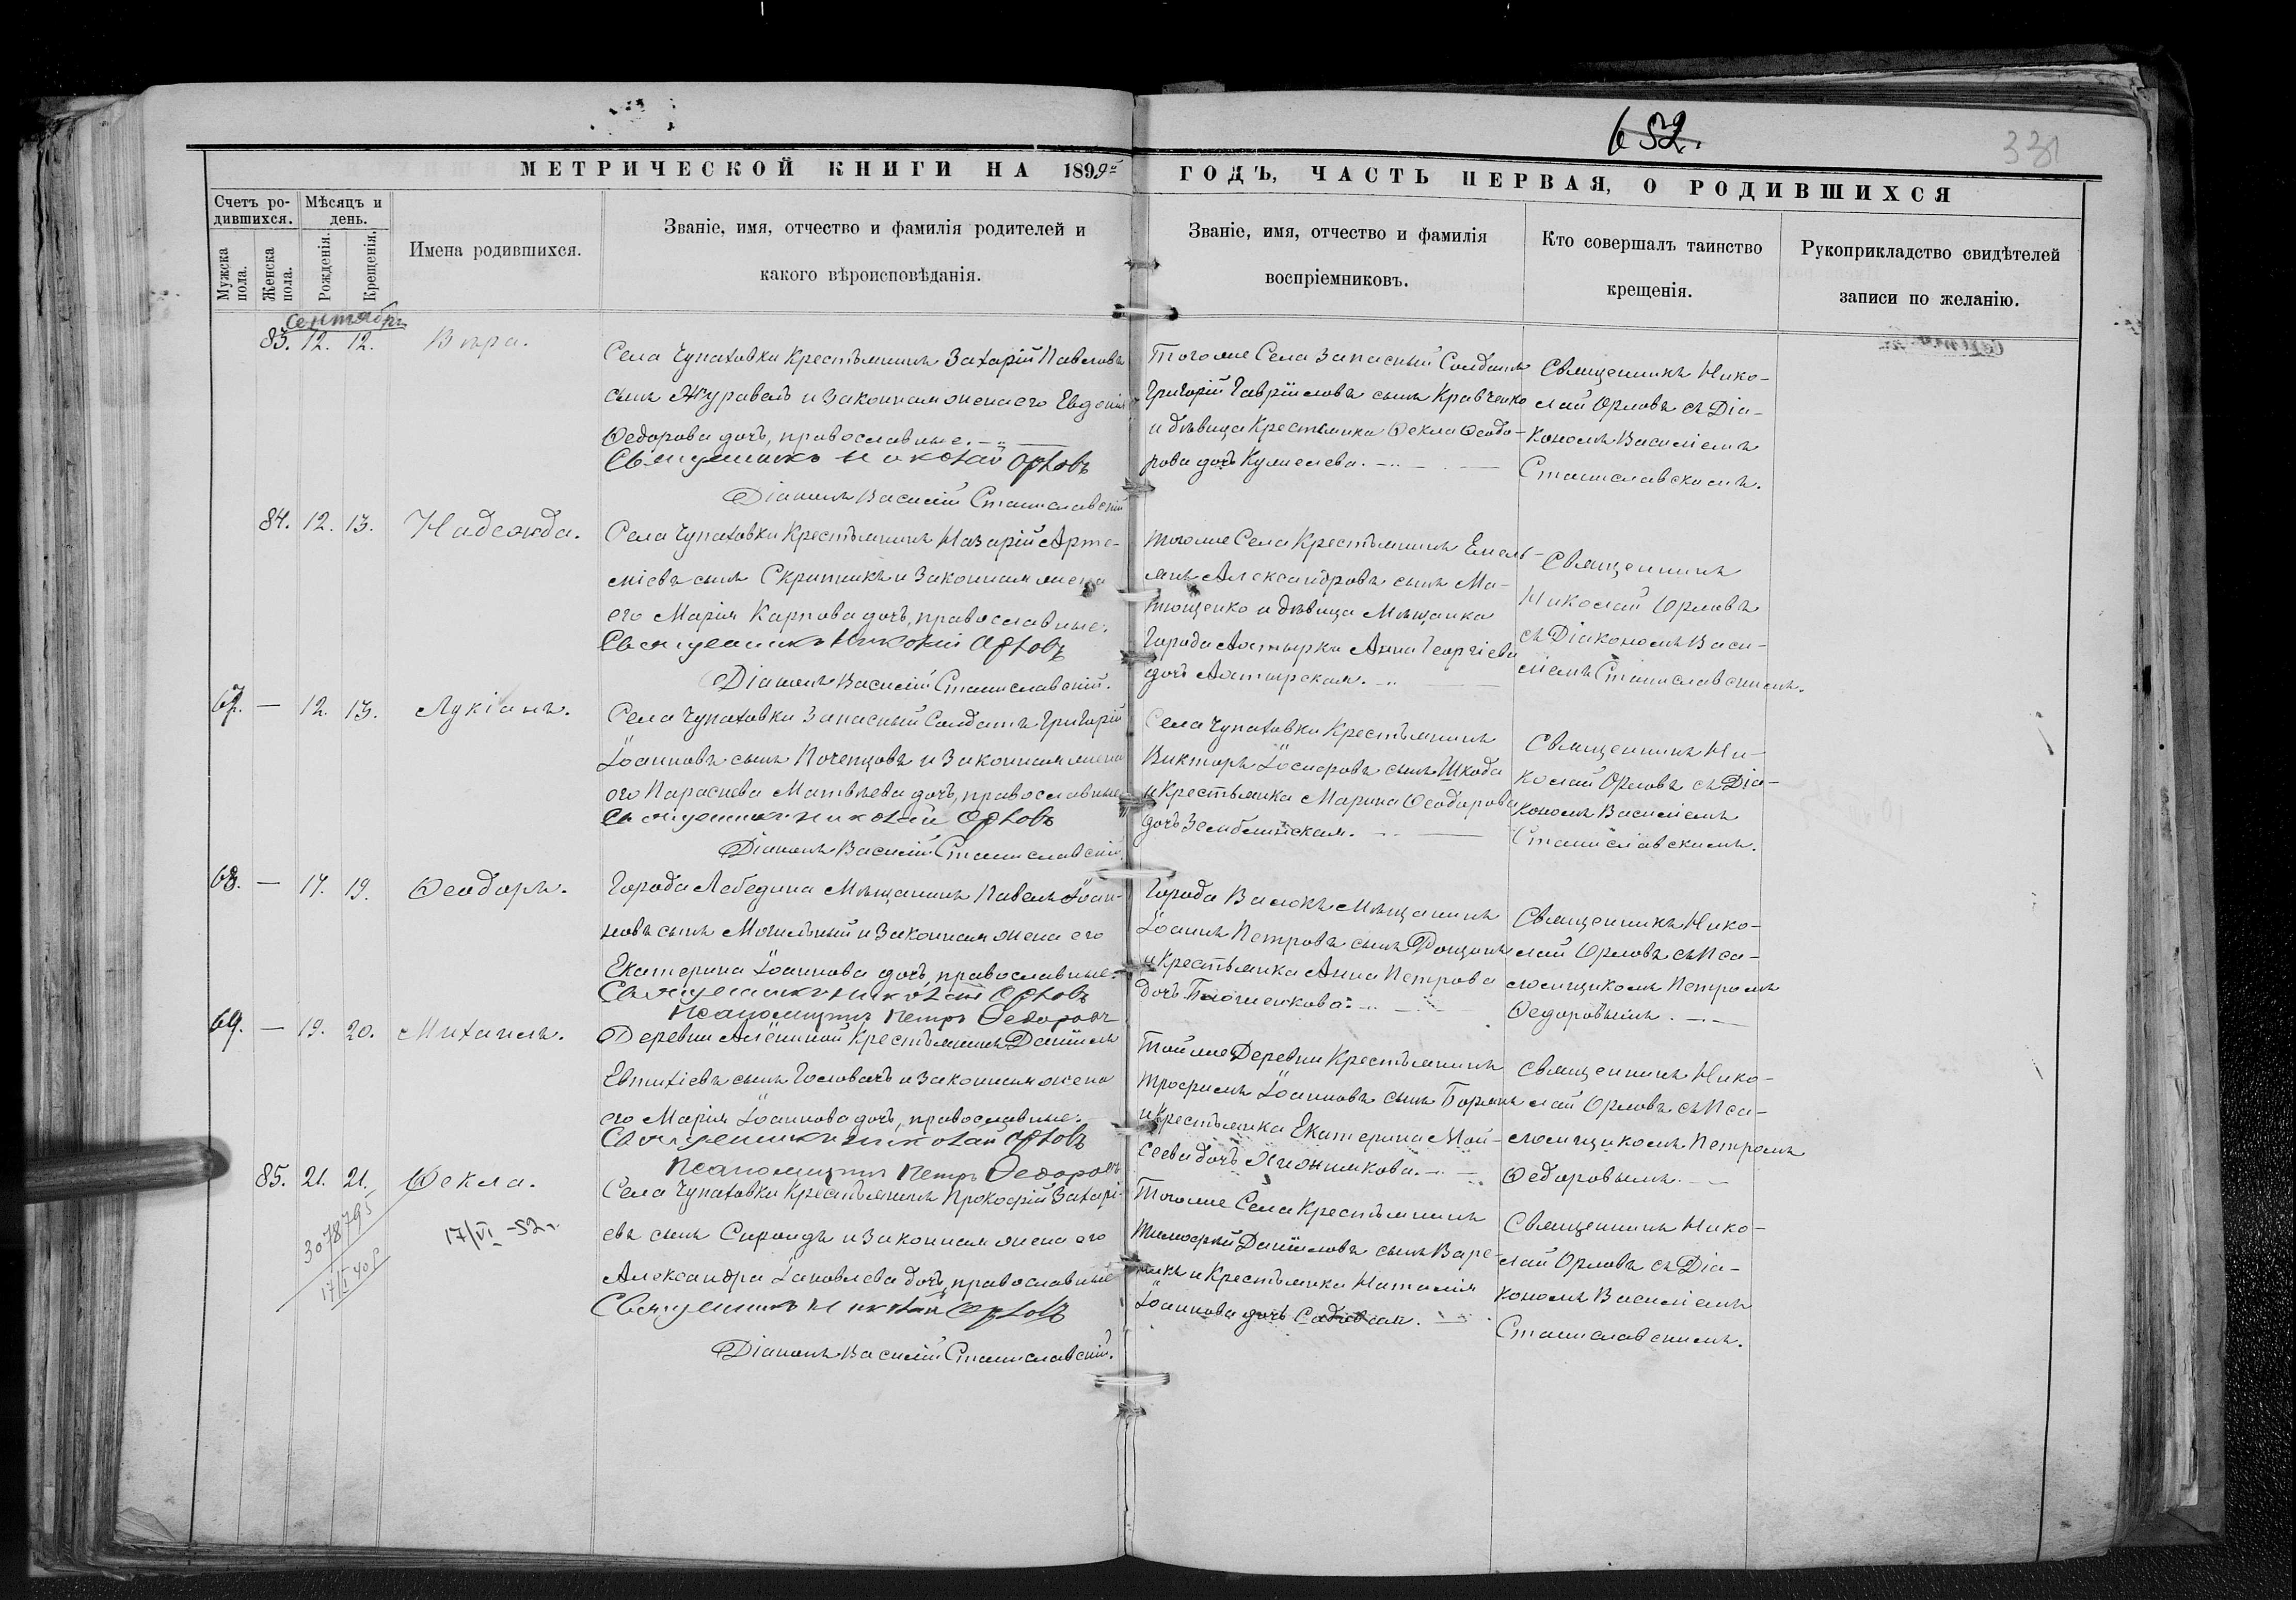 652.
331
МЕТРИЧЕСКОЙ КНИГИ НА 1899й ГОДЪ, ЧАСТЬ ПЕРВАЯ, О РОДИВШИХСЯ
Счетъ родившихся.
Мѣсяцъ и день.
Мужска пола.
Женска пола.
Рожденія.
Крещенія.
Имена родившихся.
Званіе, имя, отчество и фамилія родителей и
какого вѣроисповѣданія.
Званіе, имя, отчество и фамилія
воспріемниковъ.
Кто совершалъ таинство
крещенія.
Рукоприкладство свидѣтелей
записи по желанію.
Сентябрь
83. 12. 12. Вѣра.
Села Чупаховки Крестьянинъ Захарій Павловъ
сынъ Журавель и законная жена его Евдокія
Ѳедорова дочь, православные.
Священникъ Николай Орловъ
Діаконъ Василій Станиславскій
Тогоже Села Запасный Солдатъ
Григорій Гавріиловъ сынъ Кравченко
и дѣвица Крестьянка Ѳекла Ѳеодо-
рова дочь
Священникъ Нико-
лай Орловъ съ Діа-
кономъ Василіемъ
Станиславскимъ.
84. 12. 13. Надежда.
Села Чупаховки Крестьянинъ Назарій Арте-
міевъ сынъ Скрипникъ и законная жена
его Марія Карпова дочь, православные.
Священникъ Николай Орловъ
Діаконъ Василій Станиславскій.
Тогоже Села Крестьянинъ Емель-
янъ Александровъ сынъ Ма-
тющенко и дѣвица Мѣщанка
Города Ахтырки Анна Георгіева
дочь Ахтырская.
Священникъ
Николай Орловъ
съ Діакономъ Васи-
ліемъ Станиславскимъ.
67. — 12. 13. Лукіанъ.
Села Чупаховки Запасный Солдатъ Григорій
Іоанновъ сынъ Почепцовъ и законная жена
его Параскева Матвѣева дочь, православные
Священникъ Николай Орловъ
Діаконъ Василій Станиславскій.
Села Чупаховки Крестьянинъ
Викторъ Іосифовъ сынъ Шкода
и Крестьянка Марина Ѳеодорова
дочь Землинская.
Священникъ Ни-
колай Орловъ съ Діа-
кономъ Василіемъ
Станиславскимъ.
68. — 17. 19. Ѳеодоръ.
Города Лебедина Мѣщанинъ Павелъ Іоан-
новъ сынъ Могильный и законная жена его
Екатерина Іоаннова дочь, православные.
Священникъ Николай Орловъ
Псаломщикъ Петръ Ѳедоровъ
Города Валокъ Мѣщанинъ
Іоаннъ Петровъ сынъ Рощинъ
и Крестьянка Анна Петрова
дочь
Священникъ Нико-
лай Орловъ съ Пса-
ломщикомъ Петромъ
Ѳедоровымъ.
69. — 19. 20. Михаилъ.
Деревни Алёшиной Крестьянинъ Даніилъ
Евтихіевъ сынъ Головачъ и законная жена
его Марія Іоаннова дочь, православные.
Священникъ Николай Орловъ
Псаломщикъ Петръ Ѳедоровъ
Тойже Деревни Крестьянинъ
Трофимъ Іоанновъ сынъ
и Крестьянка Екатерина Мой-
сеева дочь
Священникъ Нико-
лай Орловъ съ Пса-
ломщикомъ Петромъ
Ѳедоровымъ.
85. 21. 21. Ѳекла.
3078795
17/II 40г
17/VI -52г.
Села Чупаховки Крестьянинъ Прокофій Захарі-
евъ сынъ и законная жена его
Александра Іаковлева дочь, православные
Священникъ Николай Орловъ
Діаконъ Василій Станиславскій.
Тогоже Села Крестьянинъ
Тимофей Даніиловъ сынъ Варе-
никъ и Крестьянка Наталія
Іоаннова дочь
Священникъ Нико-
лай Орловъ съ Діа-
кономъ Василіемъ
Станиславскимъ.